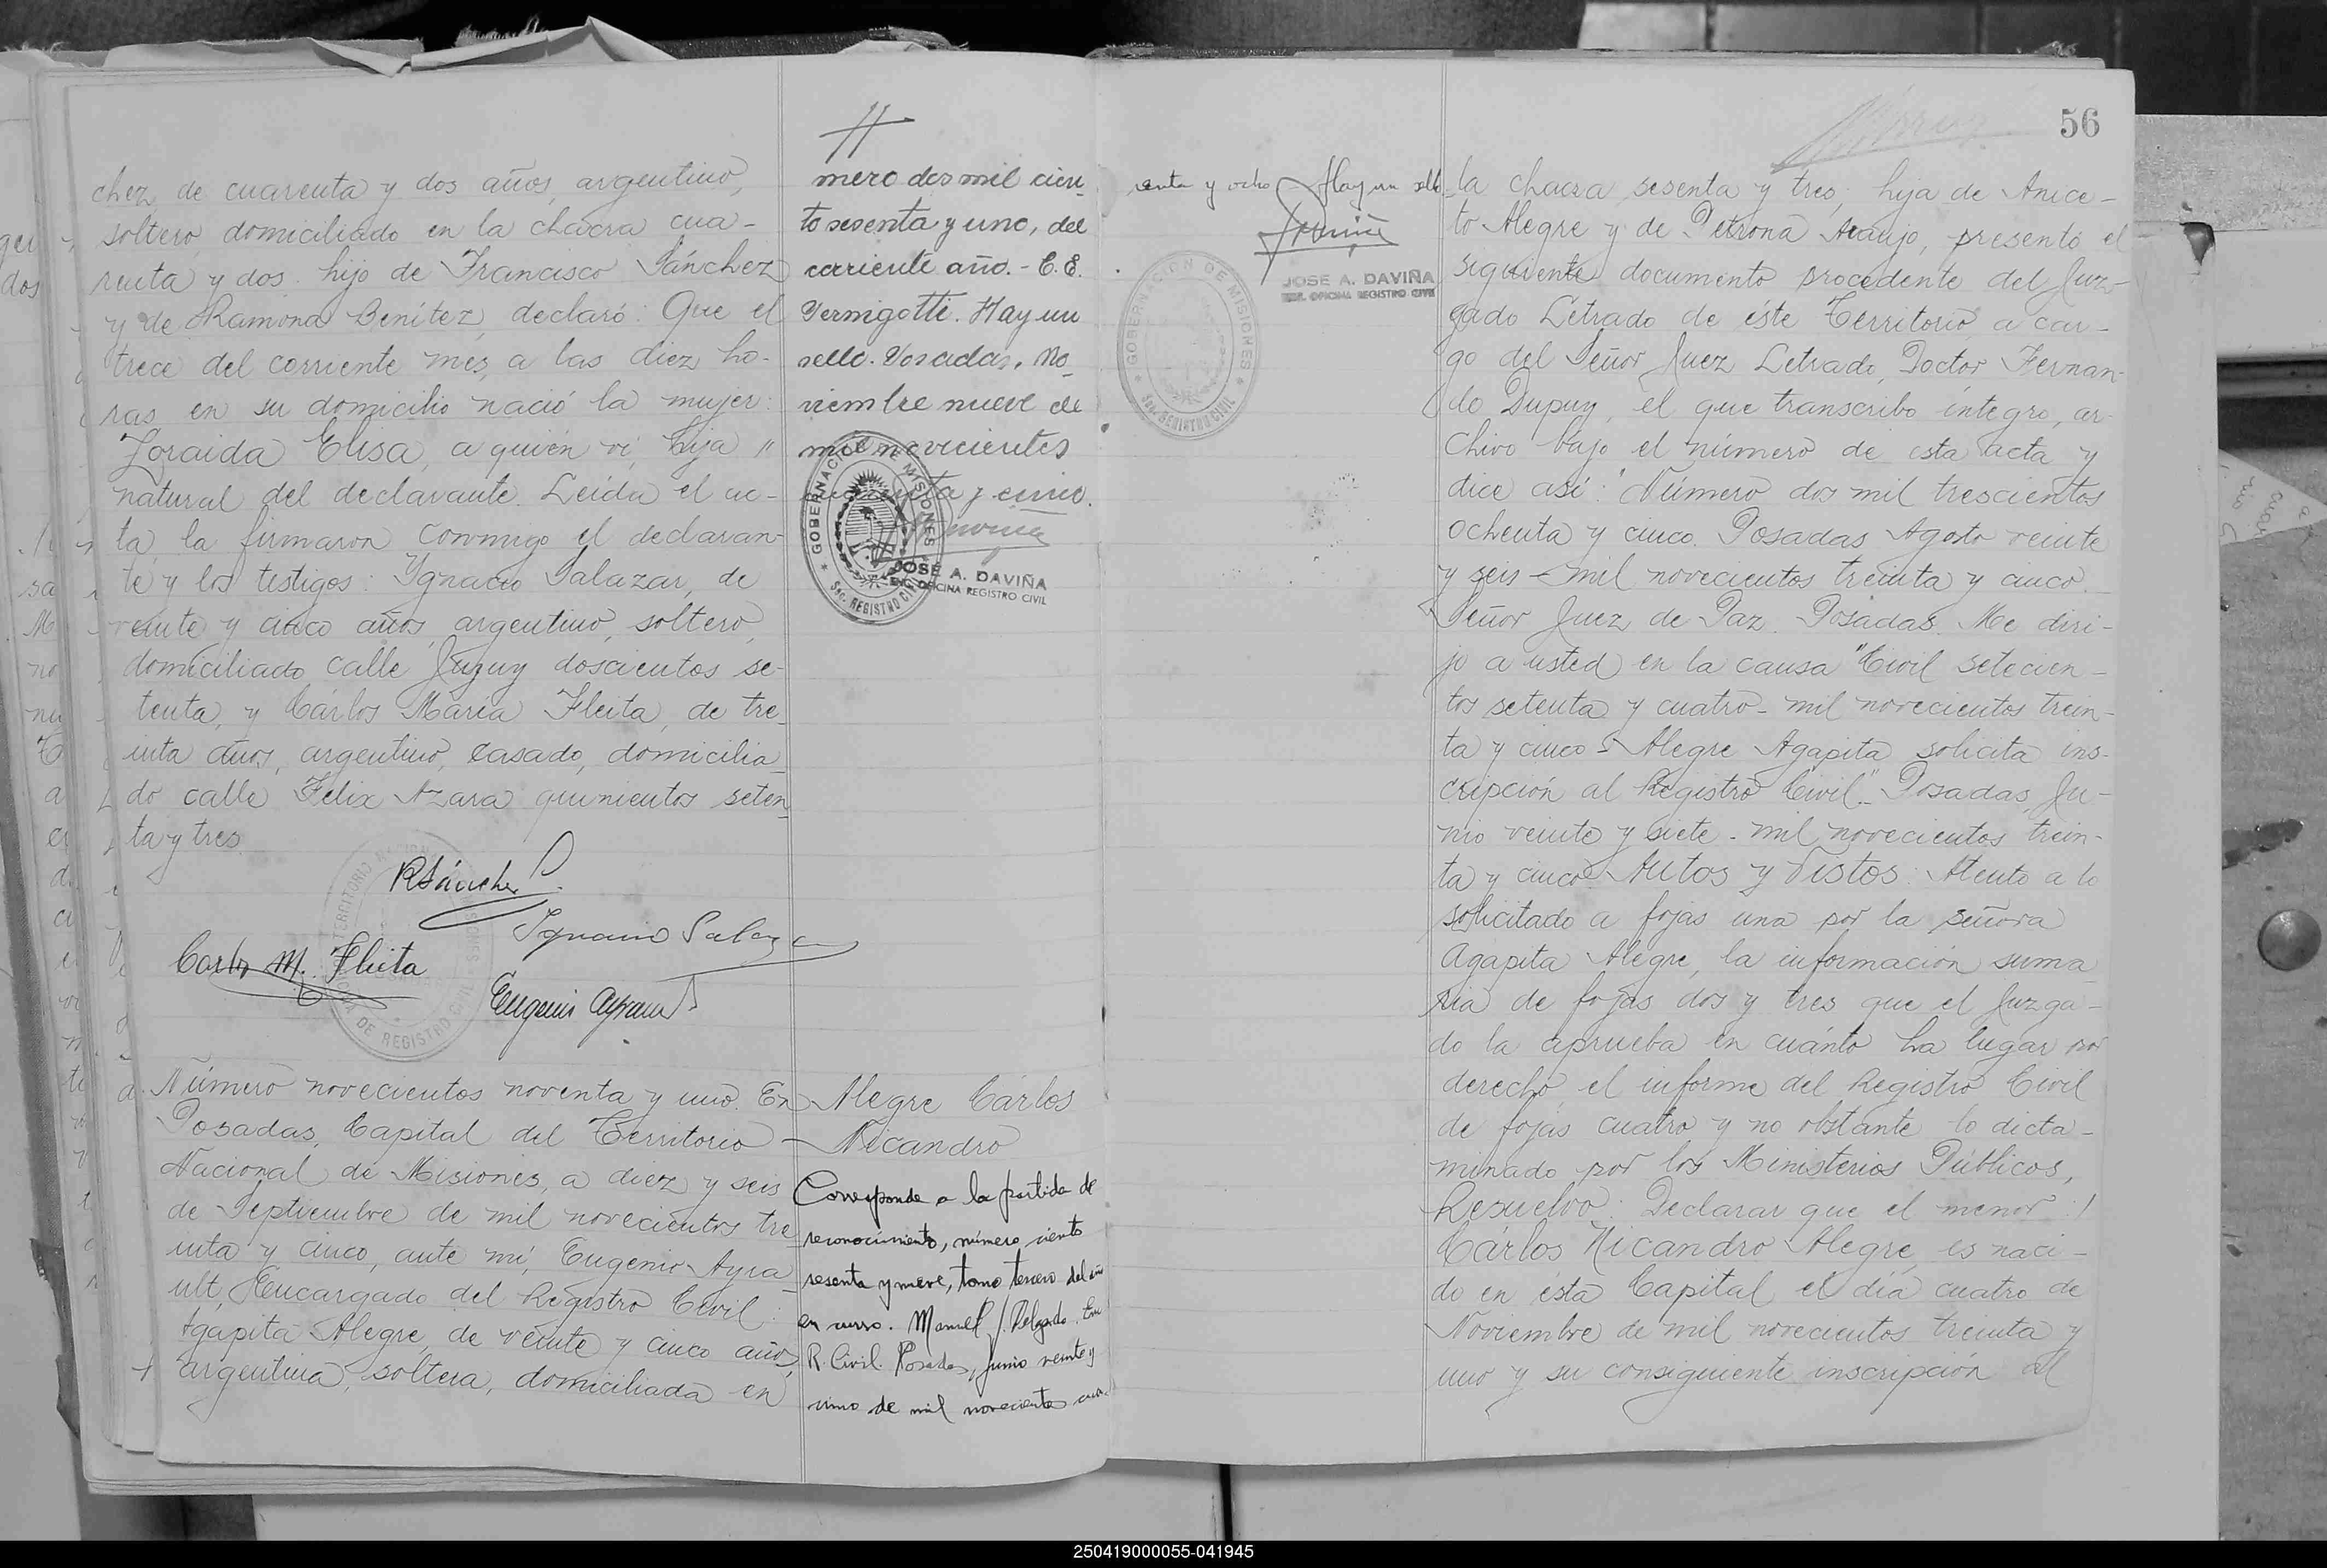 chez, de cuarenta y dos años, argentino,
soltero, domiciliado en la chacra cua-
renta y dos, hijo de Francisco Sánchez
y de Ramona Benítez, declaró: Que el
trece del corriente mes, a las diez ho-
ras en su domicilio nació la mujer:
Zoraida Elisa, a quién ví, hija "
natural del declarante. Leída el ac-
ta, la firmaron conmigo el declaran-
te y los testigos: Ygnacio Salazar, de
veinte y cinco años, argentino, soltero,
domiciliado calle Jujuy doscientos se-
tenta, y Cárlos María Fleita, de tre-
inta años, argentino, casado, domicilia-
do calle Felix Azara quinientos seten-
ta y tres.
RSánchez
Ygnacio Salazar
Carlos M. Fleita
Eugenio Ayrault
Número novecientos noventa y uno. En
Posadas, Capital del Territorio
Nacional de Misiones, a diez y seis
de Septiembre de mil novecientos tre
inta y cinco, ante mí, Eugenio Ayra
ult, Encargado del Registro Civil:
Agapita Alegre, de veinte y cinco años,
argentina, soltera, domiciliada en
mero dos mil cien-
to sesenta y uno, del
corriente año. - C. E.
Vernigotti. Hay un
sello. Posadas, No-
viembre nueve de
mil novecientos
cuarenta y cinco.
GOBERNACION DE MISIONES
Sec. REGISTRO CIVIL
JOSE A. DAVIÑA
ENC. OFICINA REGISTRO CIVIL
Alegre Cárlos
Nicandro
Corresponde a la partida de
reconocimiento, número ciento
sesenta y nueve, tomo tercero del año
en curso. Manuel J. Delgado. Enc
R. Civil. Posadas, Junio veinte y
uno de mil novecientos cua-
56
enta y ocho - Hay un sello
JOSE A. DAVIÑA
ENC. OFICINA REGISTRO CIVIL
GOBERNACION DE MISIONES
Sec. REGISTRO CIVIL
la chacra sesenta y tres, hija de Anice-
to Alegre y de Petrona Araujo, presentó el
siguiente documento procedente del Juz-
gado Letrado de éste Territorio a car-
go del Señor Juez Letrado, Doctor Fernan-
do Dupuy, el que transcribo íntegro, ar-
chivo bajo el número de esta acta y
dice así: "Número dos mil trescientos
ochenta y cinco. Posadas Agosto veinte
y seis - mil novecientos treinta y cinco.
Señor Juez de Paz. Posadas. Me diri-
jo a usted en la causa "Civil setecien-
tos setenta y cuatro - mil novecientos trein-
ta y cinco - Alegre Agapita solicita ins-
cripción al Registro Civil" - Posadas, Ju-
nio veinte y siete - mil novecientos trein-
ta y cinco - Autos y Vistos: Atento a lo
solicitado a fojas una por la señora
Agapita Alegre, la información suma
ria de fojas dos y tres que el Juzga-
do la aprueba en cuánto ha lugar por
derecho, el informe del Registro Civil
de fojas cuatro y no obstante lo dicta-
minado por los Ministerios Públicos,
Resuelvo: Declarar que el menor
Cárlos Nicandro Alegre, es naci-
do en ésta Capital el día cuatro de
Noviembre de mil novecientos treinta y
uno y su consiguiente inscripción al
250419000055-041945